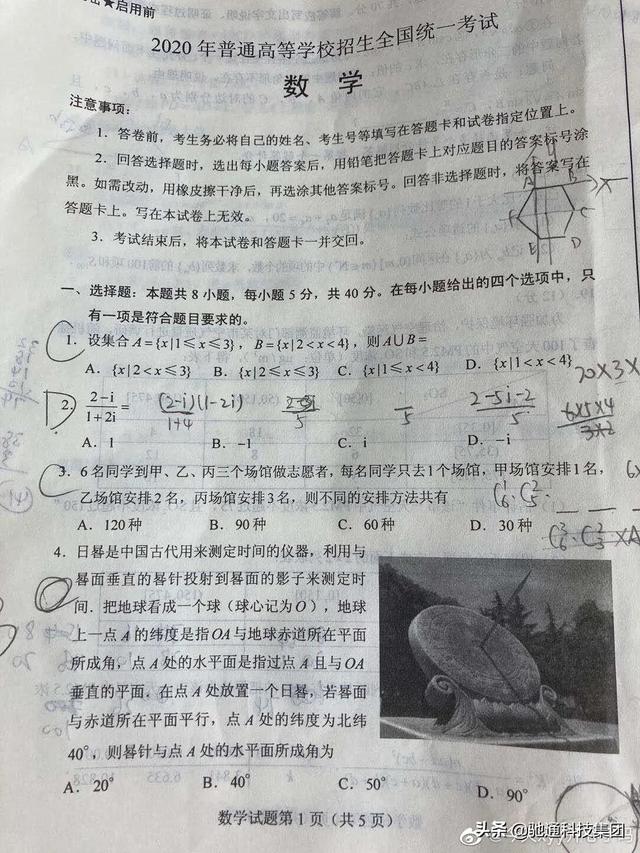 ★启用前
2020年普通高等学校招生全国统一考试
数 学
注意事项：
1．答卷前，考生务必将自己的姓名、考生号等填写在答题卡和试卷指定位置上。
2．回答选择题时，选出每小题答案后，用铅笔把答题卡上对应题目的答案标号涂
黑。如需改动，用橡皮擦干净后，再选涂其他答案标号。回答非选择题时，将答案写在
答题卡上。写在本试卷上无效。
3．考试结束后，将本试卷和答题卡一并交回。
A B X
F C
E D
一、选择题：本题共8小题，每小题5分，共40分。在每小题给出的四个选项中，只
有一项是符合题目要求的。
C
1．设集合A={x|1≤x≤3}，B={x|2<x<4}，则A∪B=
A．{x|2<x≤3} B．{x|2≤x≤3} C．{x|1≤x<4} D．{x|1<x<4}
D
2．(2-i)/(1+2i)= (2-i)(1-2i)/(1+4) 5 5 (2-5i-2)/5
6×5×4/(3×2)
A．1 B．-1 C．i D．-i
C
3．6名同学到甲、乙、丙三个场馆做志愿者，每名同学只去1个场馆，甲场馆安排1名，
乙场馆安排2名，丙场馆安排3名，则不同的安排方法共有
A．120种 B．90种 C．60种 D．30种
4．日晷是中国古代用来测定时间的仪器，利用与
晷面垂直的晷针投射到晷面的影子来测定时
间．把地球看成一个球（球心记为O），地球
上一点A的纬度是指OA与地球赤道所在平面
所成角，点A处的水平面是指过点A且与OA
垂直的平面．在点A处放置一个日晷，若晷面
与赤道所在平面平行，点A处的纬度为北纬
40°，则晷针与点A处的水平面所成角为
A．20° B．40° C．50° D．90°
数学试题第1页（共5页）
头条@驰通科技集团